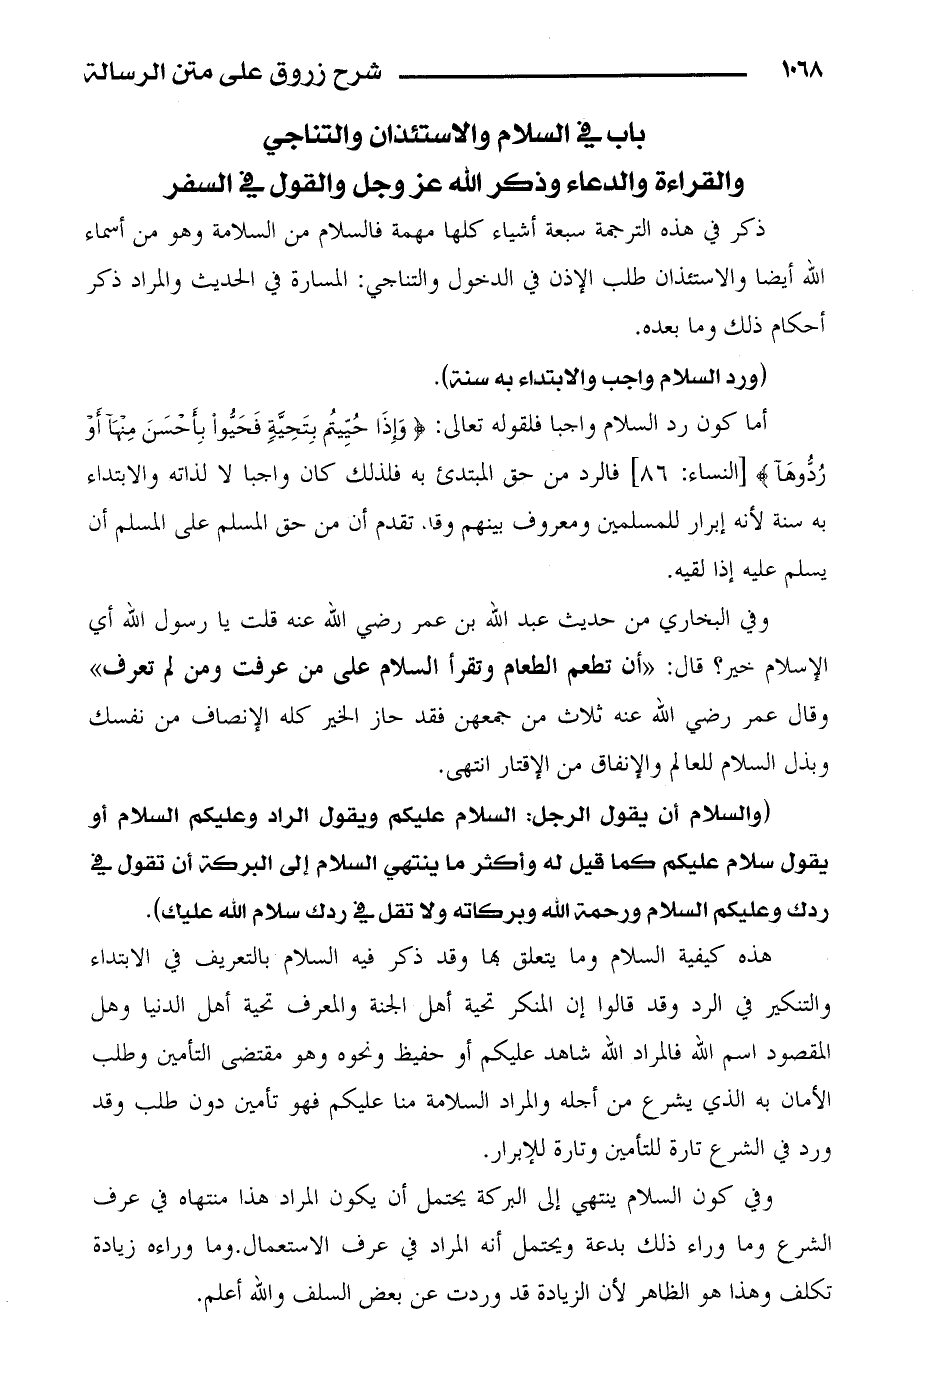 ١٠٦٨ شرح زروق على متن الرسالة
باب في السلام والاستئذان والتناجي
والقراءة والدعاء وذكر الله عز وجل والقول في السفر
ذكر في هذه الترجمة سبعة أشياء كلها مهمة فالسلام من السلامة وهو من أسماء
الله أيضا والاستئذان طلب الإذن في الدخول والتناجي: المسارة في الحديث والمراد ذكر
أحكام ذلك وما بعده.
(ورد السلام واجب والابتداء به سنة).
أما كون رد السلام واجبا فلقوله تعالى: ﴿ وَإِذَا حُيِّيتُم بِتَحِيَّةٍ فَحَيُّوا۟ بِأَحْسَنَ مِنْهَآ أَوْ
رُدُّوهَآ ﴾ [النساء: ٨٦] فالرد من حق المبتدئ به فلذلك كان واجبا لا لذاته والابتداء
به سنة لأنه إبرار للمسلمين ومعروف بينهم وقد تقدم أن من حق المسلم على المسلم أن
يسلم عليه إذا لقيه.
وفي البخاري من حديث عبد الله بن عمر رضي الله عنه قلت يا رسول الله أي
الإسلام خير؟ قال: «أن تطعم الطعام وتقرأ السلام على من عرفت ومن لم تعرف»
وقال عمر رضي الله عنه ثلاث من جمعهن فقد حاز الخير كله الإنصاف من نفسك
وبذل السلام للعالم والإنفاق من الإقتار انتهى.
(والسلام أن يقول الرجل: السلام عليكم ويقول الراد وعليكم السلام أو
يقول سلام عليكم كما قيل له وأكثر ما ينتهي السلام إلى البركة أن تقول في
ردك وعليكم السلام ورحمة الله وبركاته ولا تقل في ردك سلام الله عليك).
هذه كيفية السلام وما يتعلق بها وقد ذكر فيه السلام بالتعريف في الابتداء
والتنكير في الرد وقد قالوا إن المنكر تحية أهل الجنة والمعرف تحية أهل الدنيا وهل
المقصود اسم الله فالمراد الله شاهد عليكم أو حفيظ ونحوه وهو مقتضى التأمين وطلب
الأمان به الذي يشرع من أجله والمراد السلامة منا عليكم فهو تأمين دون طلب وقد
ورد في الشرع تارة للتأمين وتارة للإبرار.
وفي كون السلام ينتهي إلى البركة يحتمل أن يكون المراد هذا منتهاه في عرف
الشرع وما وراء ذلك بدعة ويحتمل أنه المراد في عرف الاستعمال.وما وراءه زيادة
تكلف وهذا هو الظاهر لأن الزيادة قد وردت عن بعض السلف والله أعلم.